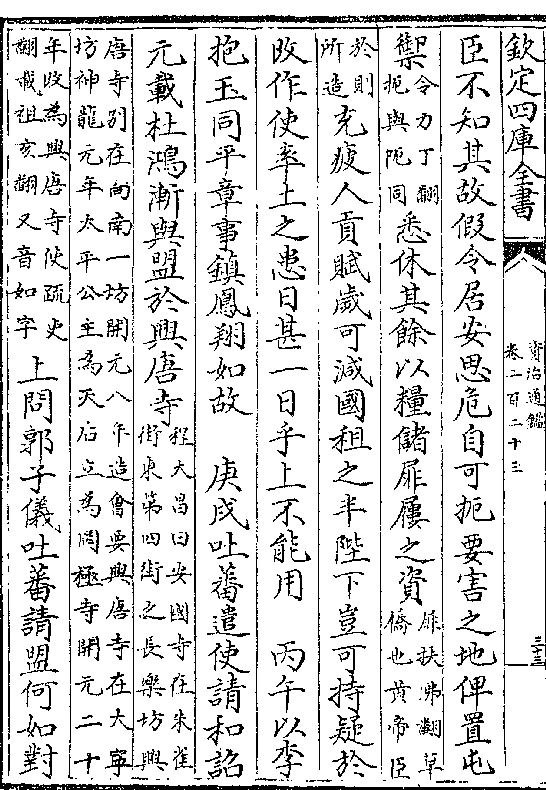 欽定四庫全書
資治通鑑
卷二百二十三
三十三
臣不知其故假令居安思危自可扼要害之地俾置屯
禦令力丁翻扼與阨同悉休其餘以糧儲屝屨之資屝扶沸翻草僑也黄帝臣
於則所造充疲人貢賦歲可減國租之半陛下豈可持疑於
改作使率土之患日甚一日乎上不能用　丙午以李
抱玉同平章事鎮鳳翔如故　庚戌吐蕃遣使請和詔
元載杜鴻漸與盟於興唐寺程大昌曰安國寺在朱雀街東第四街之長樂坊興
唐寺别在向南一坊開元八年造會要興唐寺在大寧坊神龍元年太平公主為天后立為罔極寺開元二十
年改為興唐寺使疏吏翻載祖亥翻又音如字上問郭子儀吐蕃請盟何如對